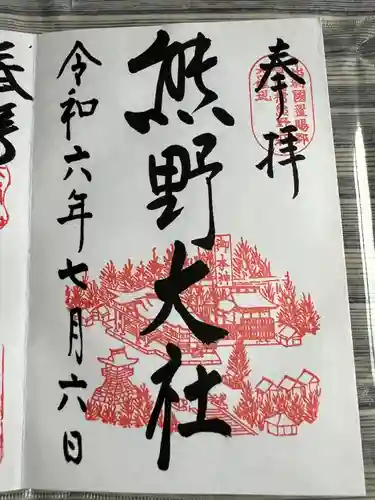 奉拝
熊野大社
令和六年七月六日